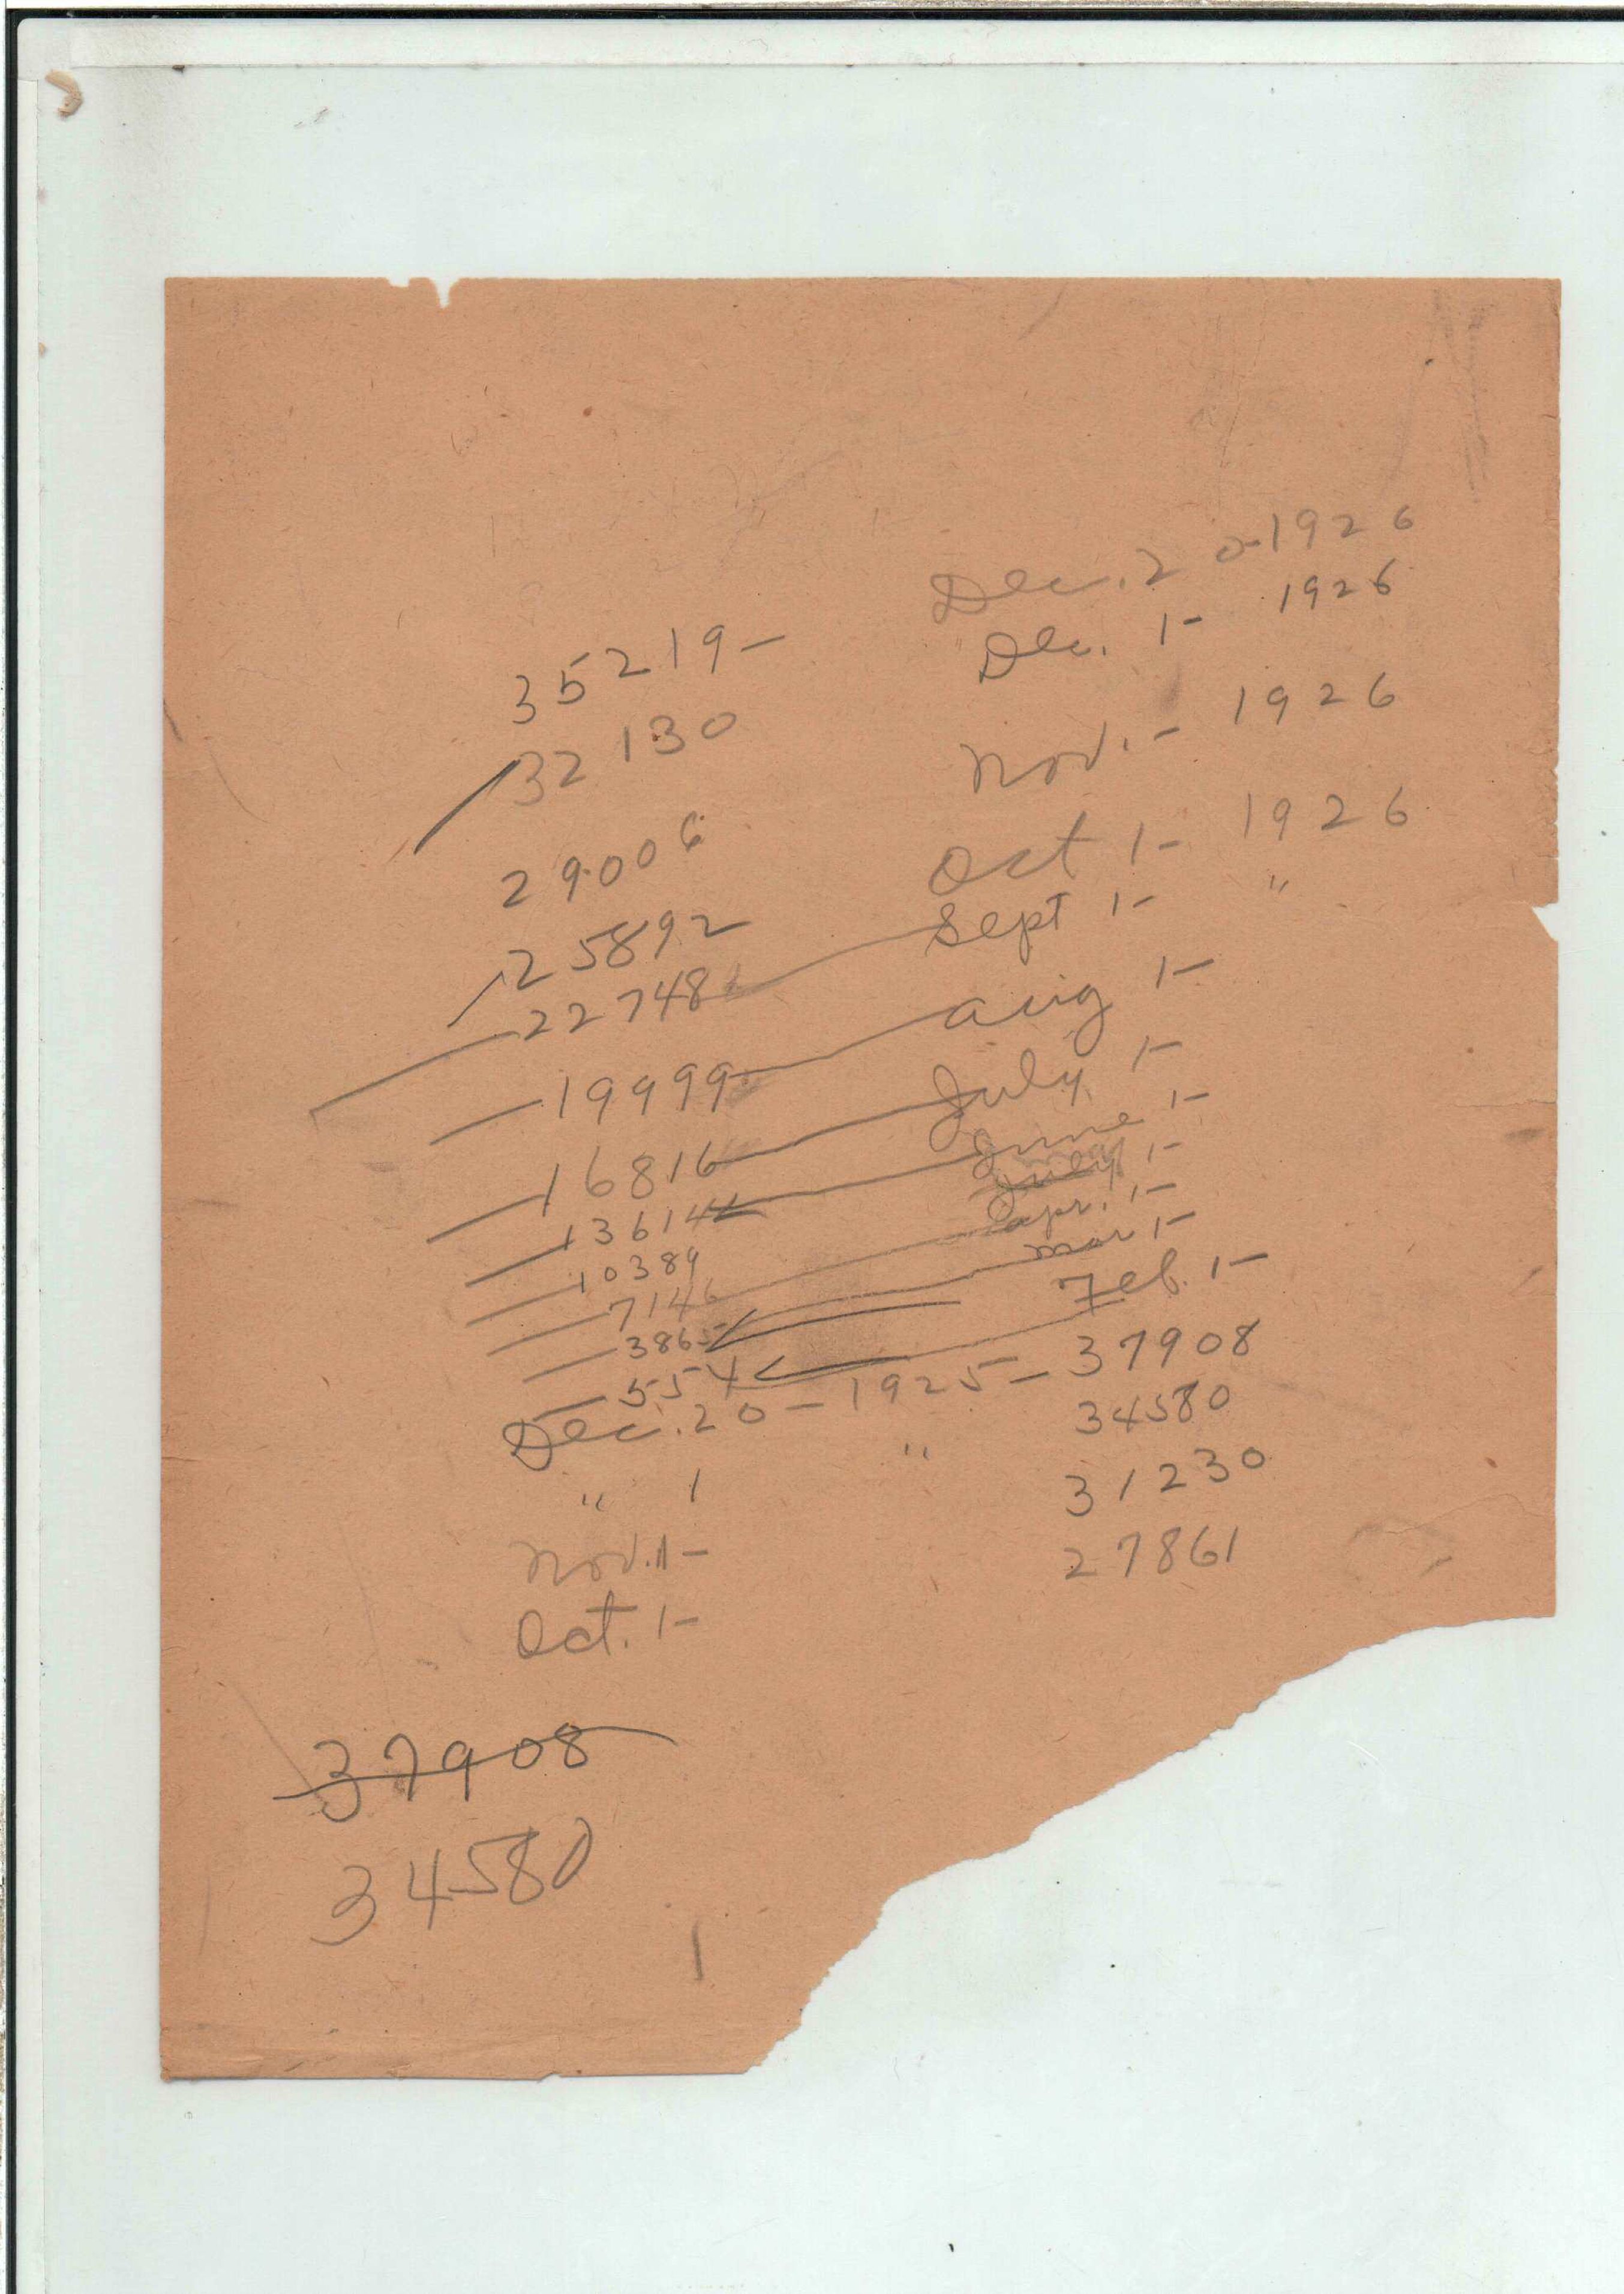 35219- Dec. 20-1926
32130 Dec. 1- 1926
29006 Nov. - 1926
25892 Oct 1- 1926
22748 Sept 1- "
19999 Aug 1-
16816 July 1-
13614 June 1-
10389 July 1-
7146 apr. 1-
3865 mar 1-
554 Feb. 1-
Dec. 20-1925-37908
" 1 " 34580
Nov. 1- 31230
Oct. 1- 27861
37908
34580
1